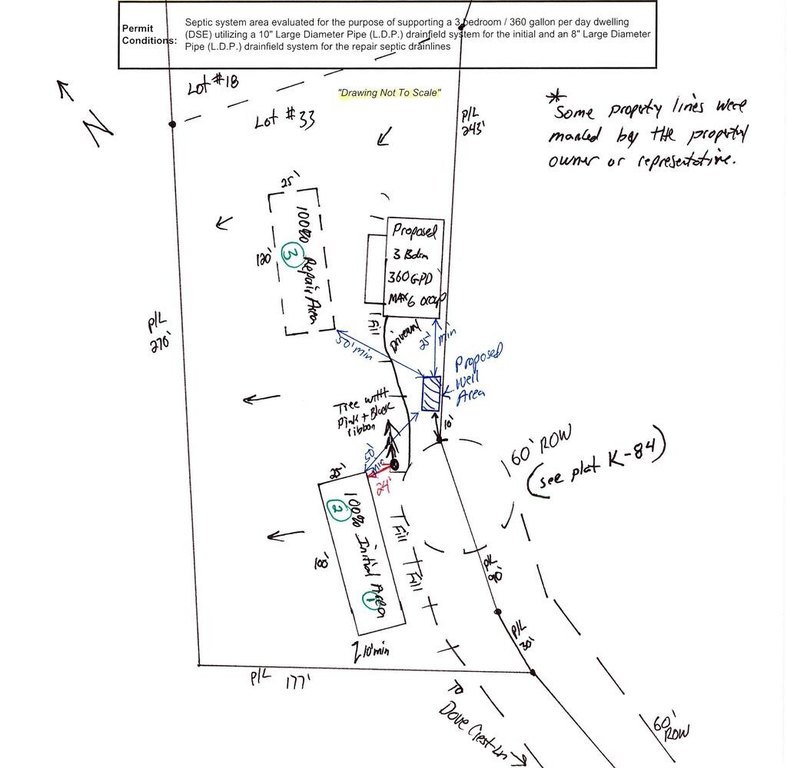 Permit
Conditions:
Septic system area evaluated for the purpose of supporting a 3 bedroom / 360 gallon per day dwelling
(DSE) utilizing a 10" Large Diameter Pipe (L.D.P.) drainfield system for the initial and an 8" Large Diameter
Pipe (L.D.P.) drainfield system for the repair septic drainlines
Lot #18
"Drawing Not To Scale"
N
Lot #33
P/L
243'
*
Some property lines were
marked by the property
owner or representative.
25'
120'
100%
Repair Area
3
Proposed
3 Bdrm
360 GPD
MAX 6 occup
P/L
270'
Fill
Driveway
50' min
25' min
Proposed
Well
Area
10'
Tree with
Pink + Black
ribbon
50' min
24'
60' ROW
(see plat K-84)
25'
100'
2
100% Initial Area
1
Fill
Fill
P/L
90'
P/L
30'
10' min
P/L 177'
To
Dove Crest Ln
60'
ROW